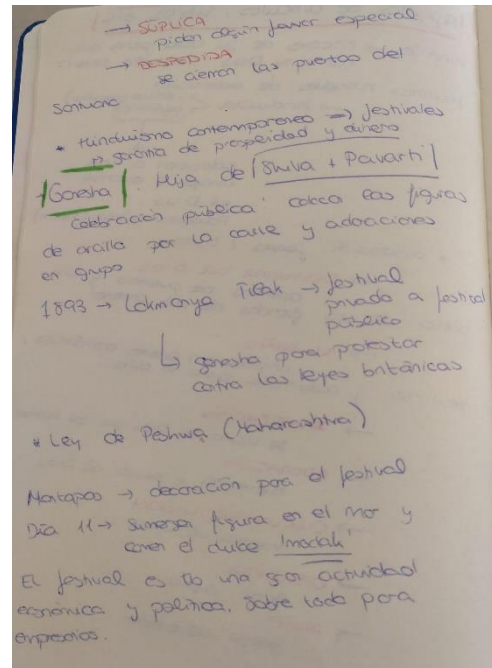 → SÚPLICA
piden algún favor especial
→ DESPEDIDA
se cierran las puertas del
santuario
* Hinduismo contemporáneo → festivales
de prosperidad y dinero
Ganesha Hija de Shiva + Pavarti
Celebración pública coloca las figuras
de arcilla por la calle y adoraciones
en grupo
1893 → Lokmanya Tilak → festival
privado a festival
público
↳ ganesha para protestar
contra las leyes británicas
* Ley de Peshwa (Maharashtra)
→ decoración para el festival
Día 11 → sumergen figura en el mar y
comen el dulce 'modak'
El festival es tb una gran actividad
económica y política. Sobre todo para
empresarios.